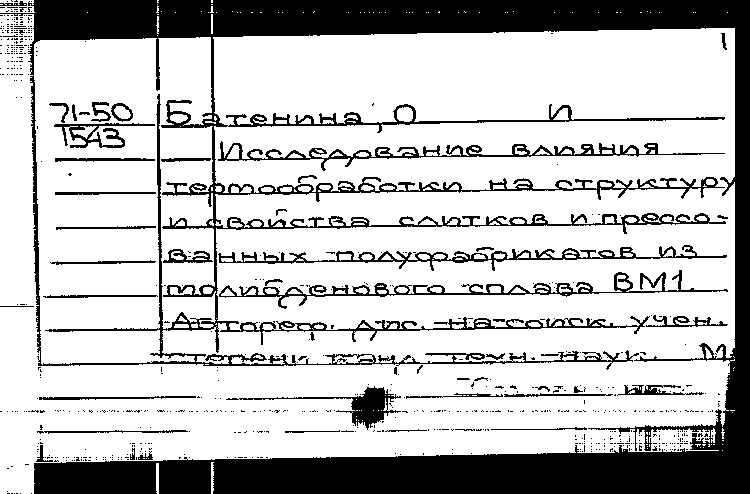 1
71-50
1543
Батенина, О И
Исследование влияния
термообработки на структуру
и свойства слитков и прессо-
ванных полуфабрикатов из
молибденового сплава ВМ1.
Автореф. дис. на соиск. учен.
степени канд. техн. наук. М